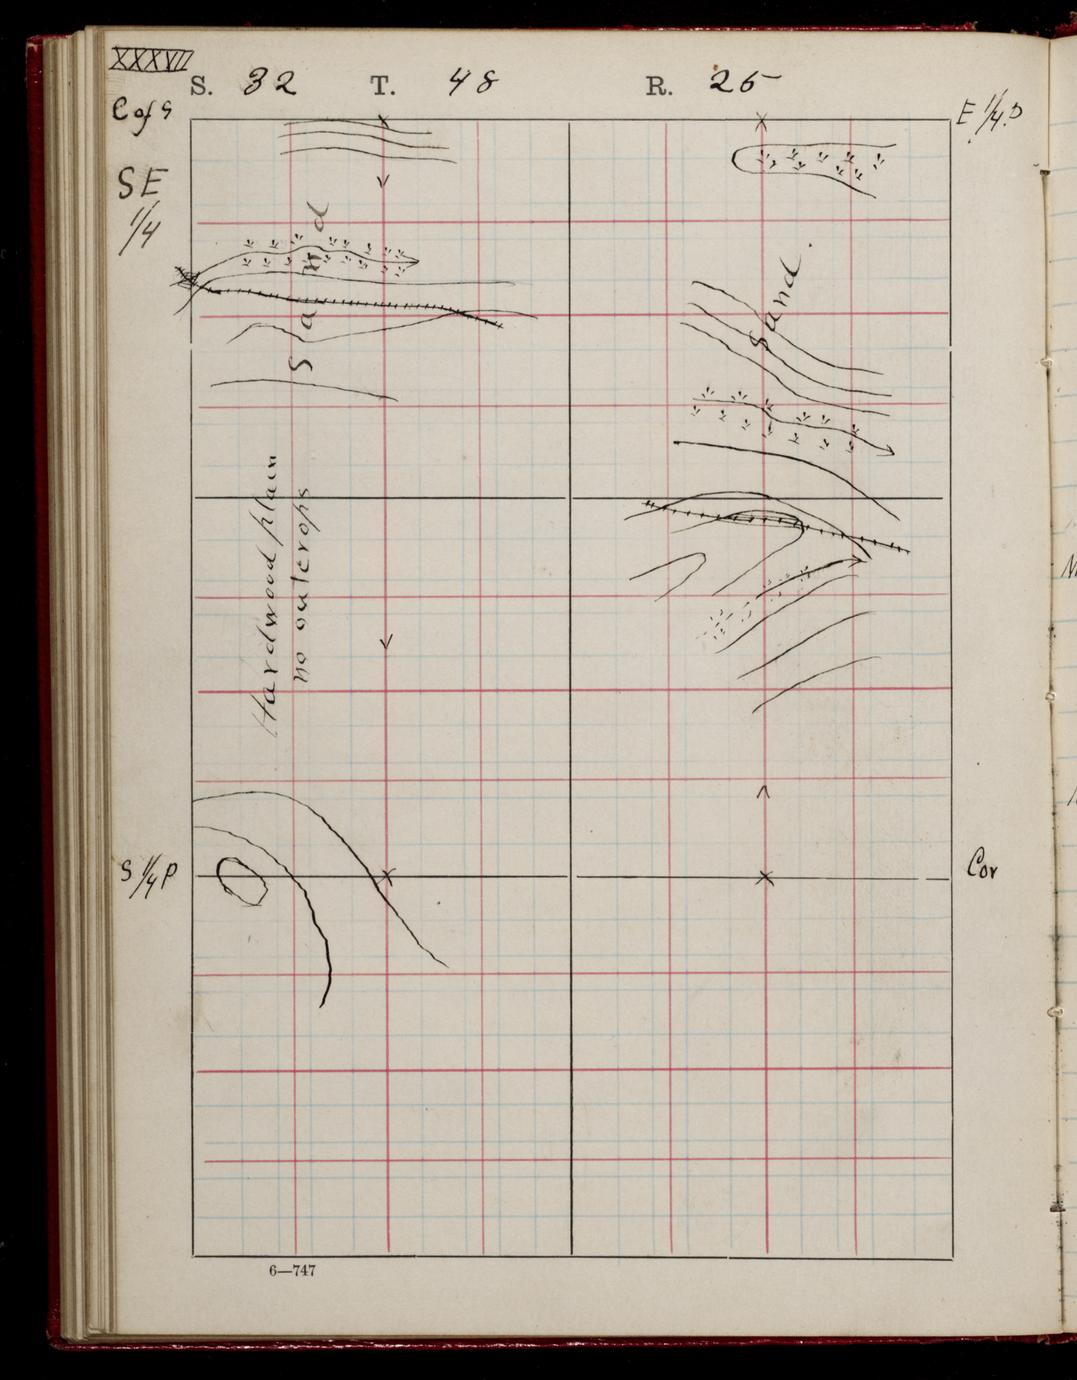 XXXVII
S. 32 T. 48 R. 25
C of S
E 1/4 P
SE
1/4
Sand
Sand.
Hardwood plain
no outcrops
S 1/4 P
Cor
6—747